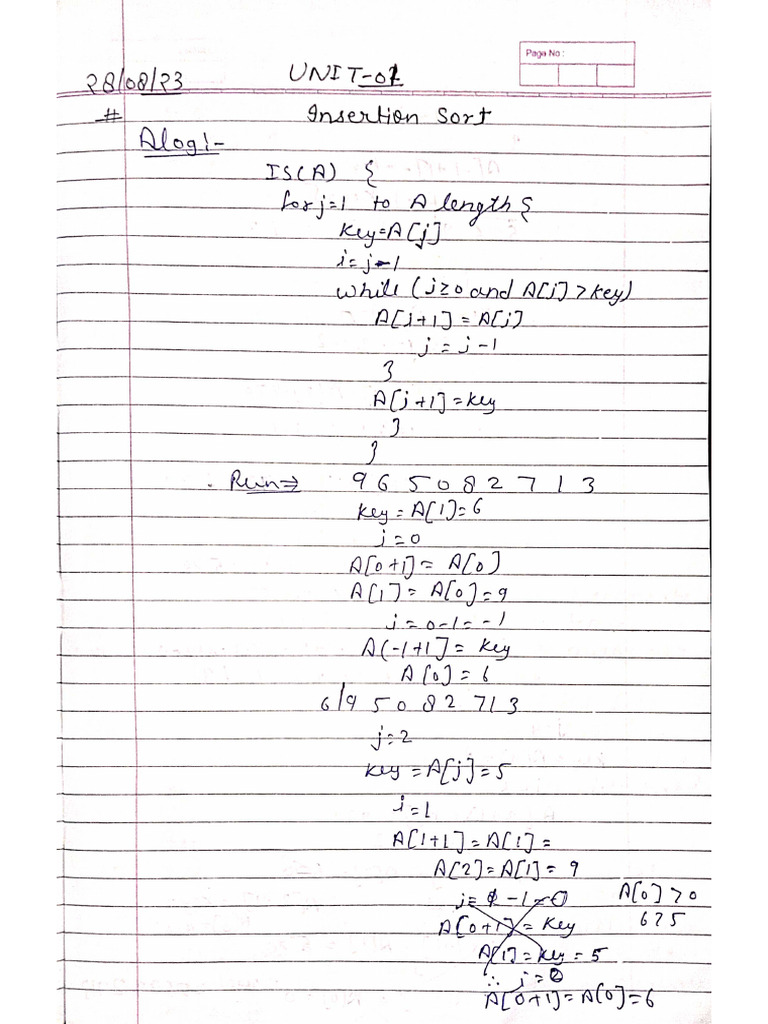 Page No :
28/08/23 UNIT-01
# Insertion Sort
Alog:-
IS(A) {
for j=1 to A length {
Key=A[j]
i=j-1
while (i≥0 and A[i]>Key)
A[i+1] = A[i]
i = i-1
}
A[i+1] = Key
}
}
Run⇒ 9 6 5 0 8 2 7 1 3
Key = A[1]=6
i=0
A[0+1] = A[0]
A[1] = A[0]=9
i=0-1=-1
A(-1+1] = Key
A[0] = 6
6/9 5 0 8 2 7 1 3
j=2
Key = A[j]=5
i=1
A[1+1]=A[1]=
A[2]=A[1]=9
A[0]>0
A[0+1]=Key
6>5
A[1]=Key=5
∴ i=0
A[0+1]=A[0]=6